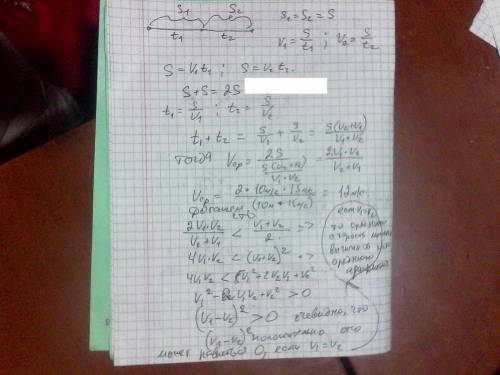 S₁ S₂
t₁ t₂
S₁ = S₂ = S
V₁ = S/t₁ ; V₂ = S/t₂
S = V₁t₁ ; S = V₂t₂.
S+S = 2S
t₁ = S/V₁ ; t₂ = S/V₂
t₁ + t₂ = S/V₁ + S/V₂ = S(V₂+V₁)/V₁·V₂
тогда Vср = 2S/(S(V₂+V₁)/V₁·V₂) = 2V₁·V₂/V₂+V₁
Vср = 2·10м/с·15м/с/(10м+15м/с) = 12м/с.
что
2V₁·V₂/V₂+V₁ < V₁+V₂/2 =>
4V₁V₂ < (V₁+V₂)² =>
4V₁V₂ < V₁²+2V₂V₁+V₂²
V₁² - 2V₁V₂ + V₂² > 0
(V₁-V₂)² > 0 очевидно, что
(V₁-V₂)² положительно оно
может равняться 0, если V₁=V₂
если V₁=V₂
то
скорость